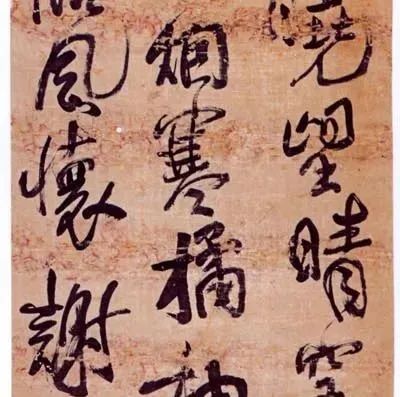 曉望晴空
烟寒橘柚
臨風懷謝